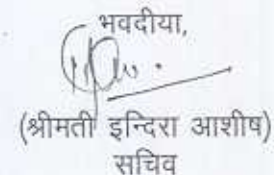 भवदीया,
(श्रीमती इन्दिरा आशीष)
सचिव